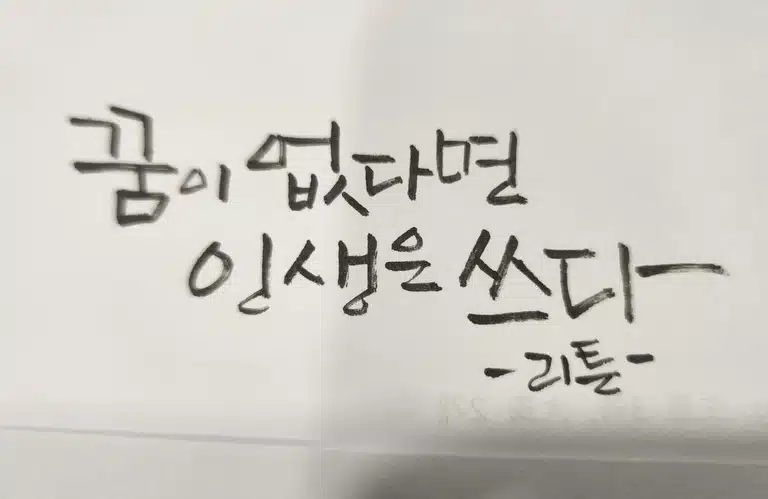 꿈이 없다면
인생은 쓰다
-리튼-